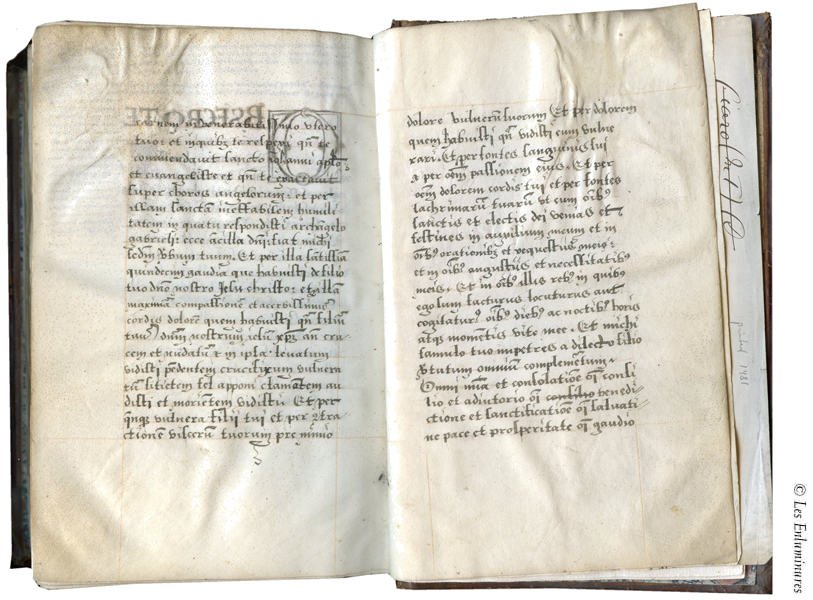 carnem in venerabilissimo utero
tuo: et in quibꝫ te respexit qñ te
commendavit sancto iohanni aplo
et evangeliste et qñ te exaltavit
super choros angelorum: et per
illam sanctā ineffabilem humili
tatem in qua tu respondisti archāgelo
gabrieli: ecce ācilla dñi: fiat michi
scdm vbum tuum. Et per illa
quindecim gaudia que habuisti de filio
tuo dño nostro Jesu christo: et illā
maximā compassionē et acerbissimū
cordis dolorē quem habuisti qñ filiū
tuū dnm nostrum iesū xp̄m an cru
cem et nudatū & in ipsa levatum
vidisti pēdentem crucifixum vulnera
tū sitiētem fel apponi clamātem au
disti et moriētem vidisti Et per
qnqꝫ vulnera filii tui et per ꝯtra
ctionē viscerū tuorum pre nimio
dolore vulnerū tuorum Et per dolorem
quem habuisti qñ vidisti eum vulne
rari. Et per fontes sanguinis sui
& per oēm passionem eius. Et per
oēm dolorem cordis tui et per fontes
lachrimarū tuarū ut cum oibꝰ
sanctis et electis dei venias et
festines in auxilium meum et in
oibꝰ orationibꝫ et requestis meis:
et in oibꝰ angustiis et necessitatibꝰ
meis. Et in oibꝰ illis rebꝰ in quibꝰ
ego sum facturus locuturus aut
cogitaturꝰ oibꝰ diebꝰ ac noctibꝰ horis
atqꝫ momētis vite mee. Et michi
famulo tuo impetres a dilecto filio
virtutum omnium complemētum.
Omni mīa et consolatiōe oī consi
lio et adiutorio oī consilio benedi
ctione et sanctificatiōe oī salvati
ne pace et prosperitate oī gaudio
© Les Enluminures